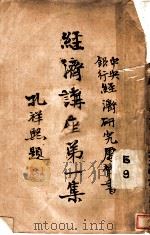 中央
銀行經濟研究處叢書
經濟講座第一集
孔祥熙題
59